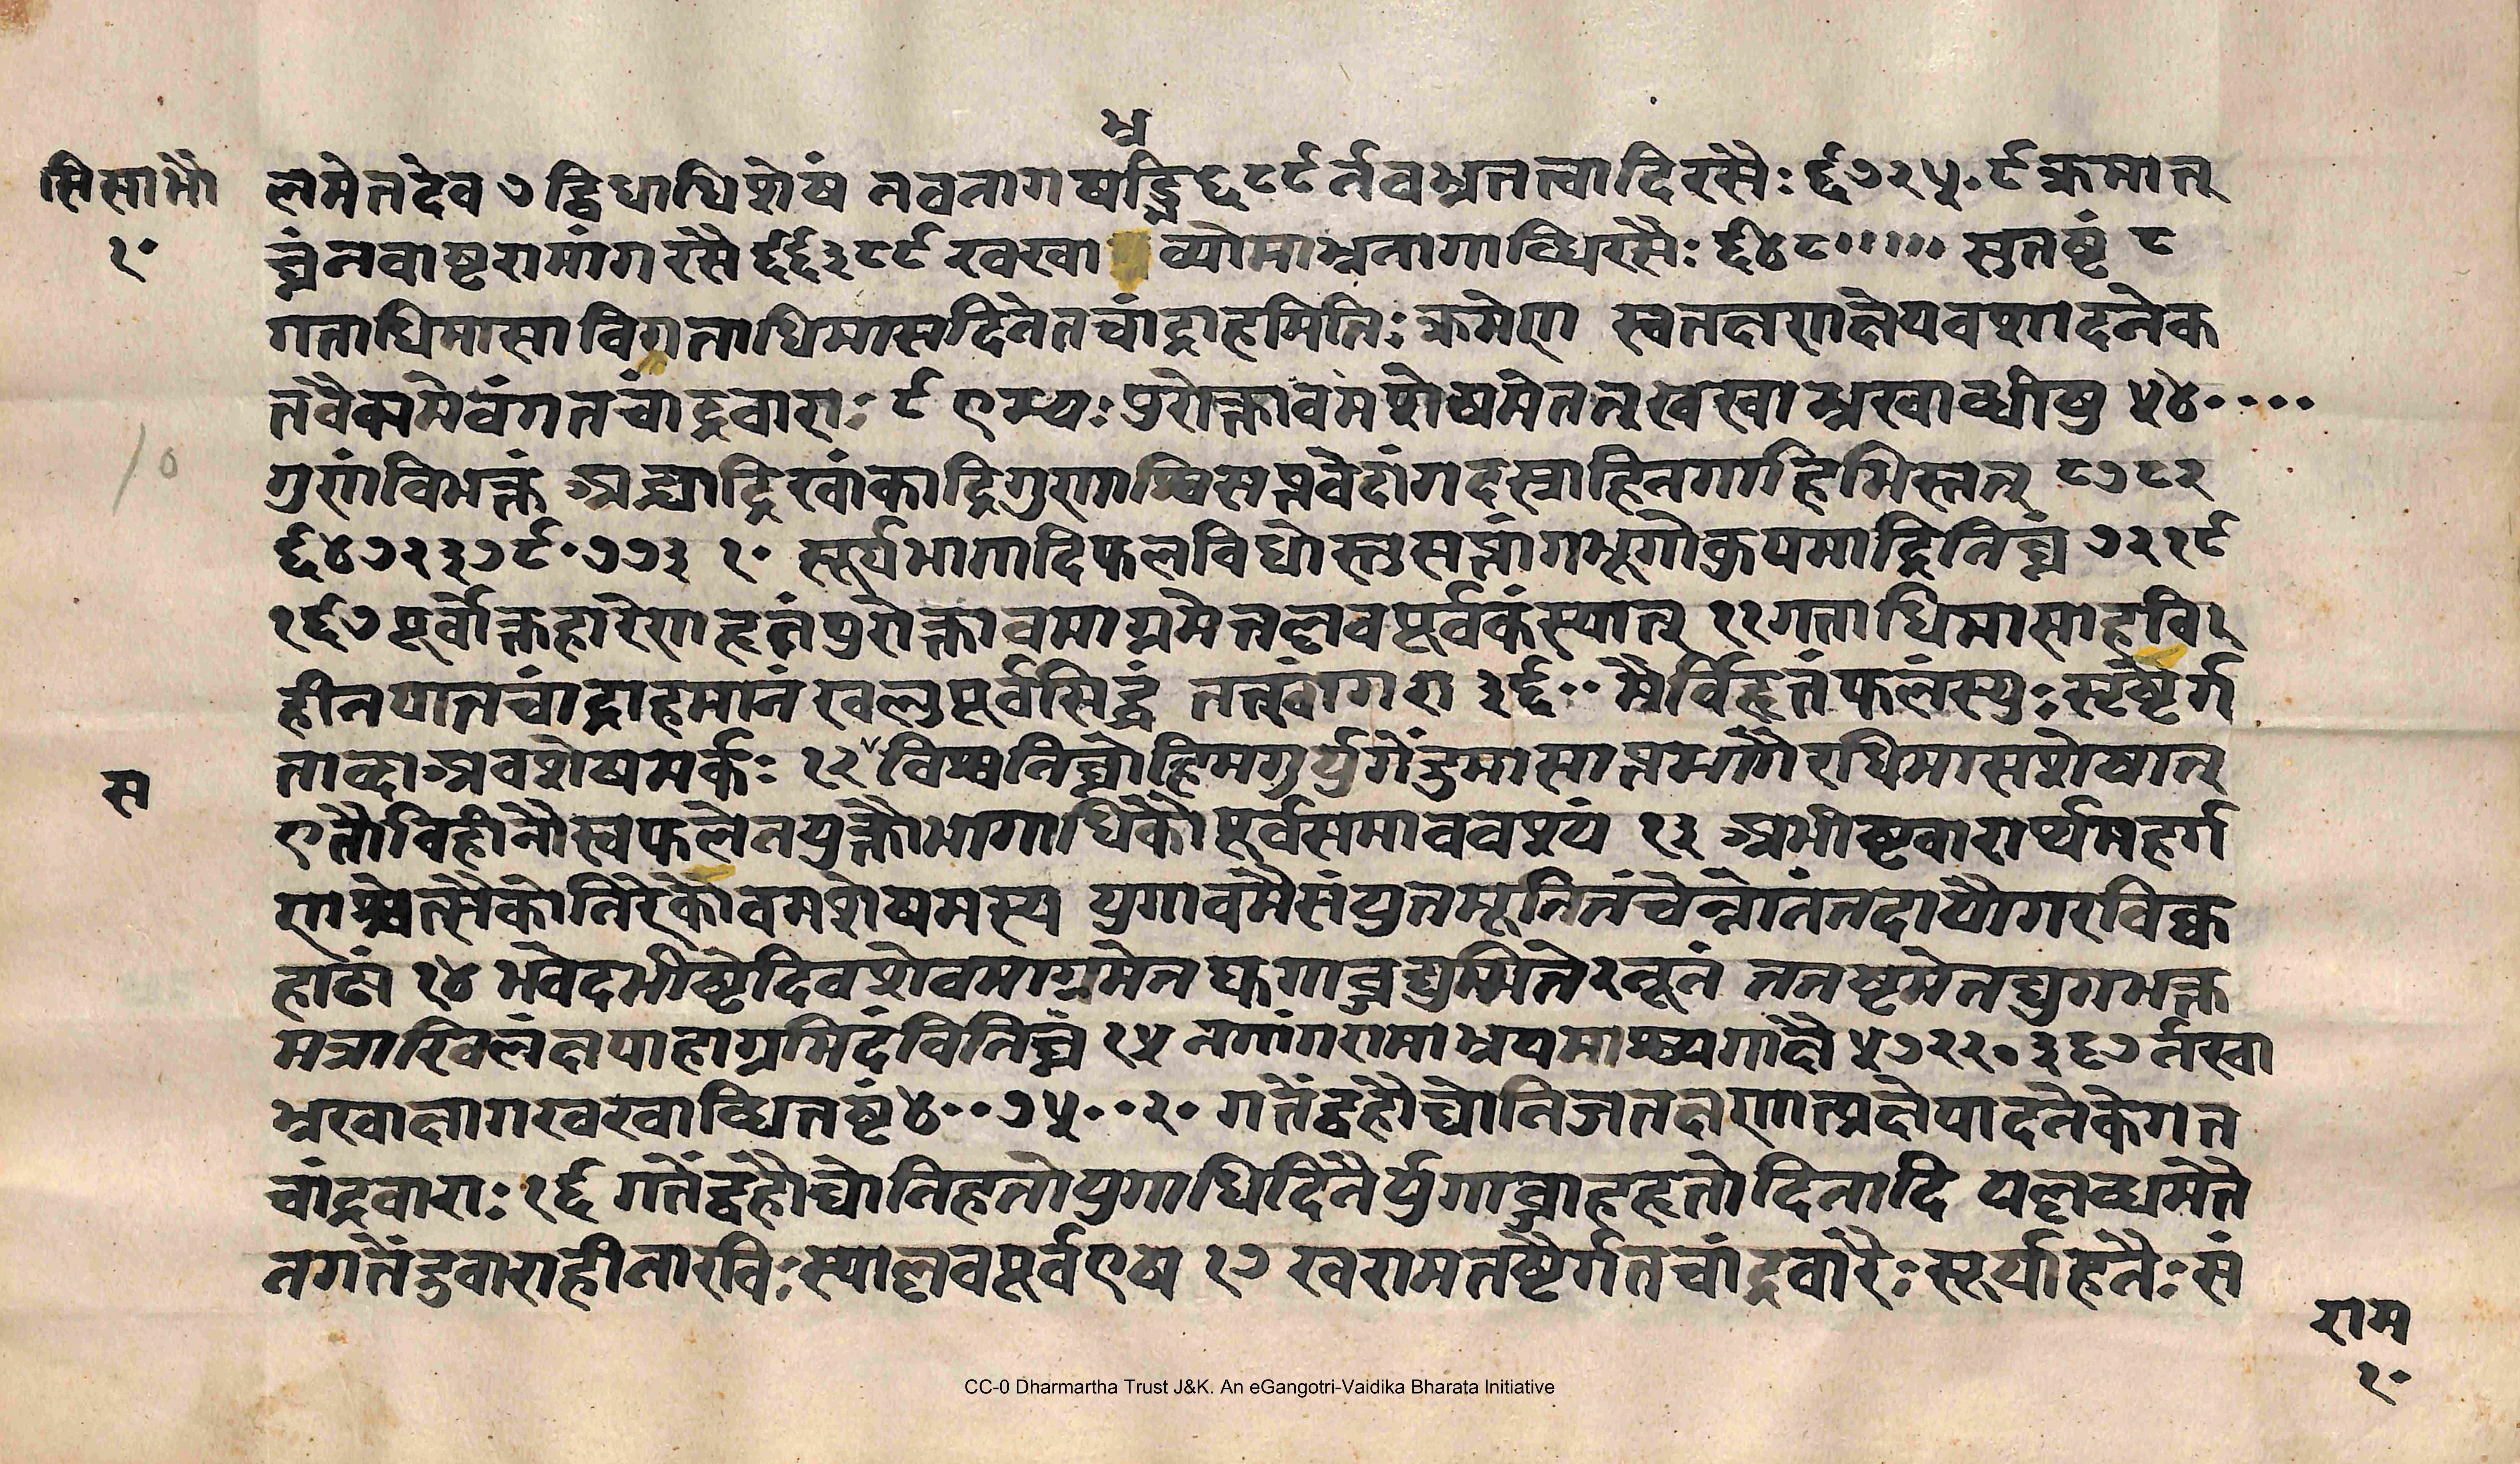 भ्र
सि सा भौ
१०
लमेतदेव ७ द्विधाधिशेषं नवनागषड्भि ६८९ र्नवभ्रतत्वाद्रिरसैः ६७२५०९ क्रमात्
घ्नं नवाष्टरामांगरसै ६६३८९ खखा व्योमाभ्रनागाब्धिरसैः ६४८००००० सुतष्टं ८
गताधिमासा विगताधिमासदिनेतचांद्राहमितिः क्रमेण स्वतक्षणक्षेपवशादनेक
तवैक्रमेवंगतचांद्रवाराः ९ एम्यः पुरोक्तावमशेषमेतत् खखाभ्रखाब्धीषु ५४००००
गुणंविभक्तं अक्ष्यद्रिखांकाद्रिगुणाश्विसप्तवेदांगदस्राहिनगाहिभिस्तत् ८७८२
६४७२३७९०७७३ १० सूर्यभागादिफलविधोस्तुसप्तांगभूगोकुयमाद्रिनिघ्नं ७२१९
१६७ पूर्वोक्तहारेणहृतंपुरोक्तावमाग्रमेतल्लवपूर्वकंस्यात् ११ गताधिमासाहवि
हीनयातचांद्राहमानं खलुपूर्वसिद्धं तत्खांगरा ३६०० मैर्विहृतंफलंस्युः सृष्टेर्ग
ताब्दाअवशेषमर्कः १२ विश्वनिघ्नोहिमगुर्युगेंदुमासाप्तभागैरधिमासशेषात्
स
एतौविहीनौस्वफलेनयुक्तौभागाधिकौपूर्वसमाववश्यं १३ अभीष्टवारार्थमहर्ग
णश्चेत्सैकोनिरेकोवमशेषमस्य युगावमैसंयुतमूनितंचेन्नोतंतदायौगरविक्ष
हाढ्यं १४ भवेदभीष्टेदिवशेवमाग्रमेन घ्कगाब्जद्युमितेनूनं ततष्टमेतद्युगभक्त
मत्राखिलंक्षपाहाग्रमिदंविनिघ्नं १५ नगांगरामाभ्रयमाश्व्यगाक्षै ५७२२०३६७ र्नखा
भ्रखाक्षागखखाब्धितष्टं ४००७५००२० गतेंद्वहौघोनिजतक्षणात्प्रक्षेपादनेकेगत
चांद्रवाराः १६ गतेंद्वहौघोनिहतोयुगाधिदिनैर्युगाब्जाहहृतोदिनादि यल्लब्धमेते
नगतेंदुवाराहीनारविः स्याल्लवपूर्वएष १७ खरामतष्टेर्गतचांद्रवारैः सूर्याहतैः सं
राम
१०
CC-0 Dharmartha Trust J&K. An eGangotri-Vaidika Bharata Initiative